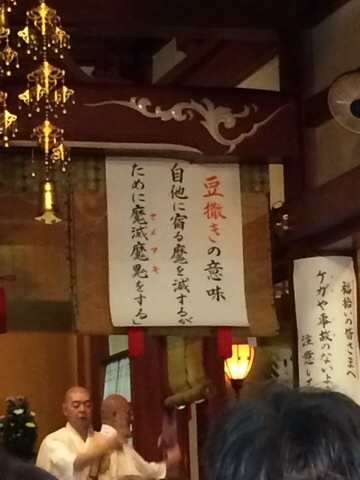 豆撒きの意味
自他に宿る魔を滅するが
ために魔滅魔鬼をする」
マメマキ
福拾いの皆さまへ
ケガや事故のないよ
注意して